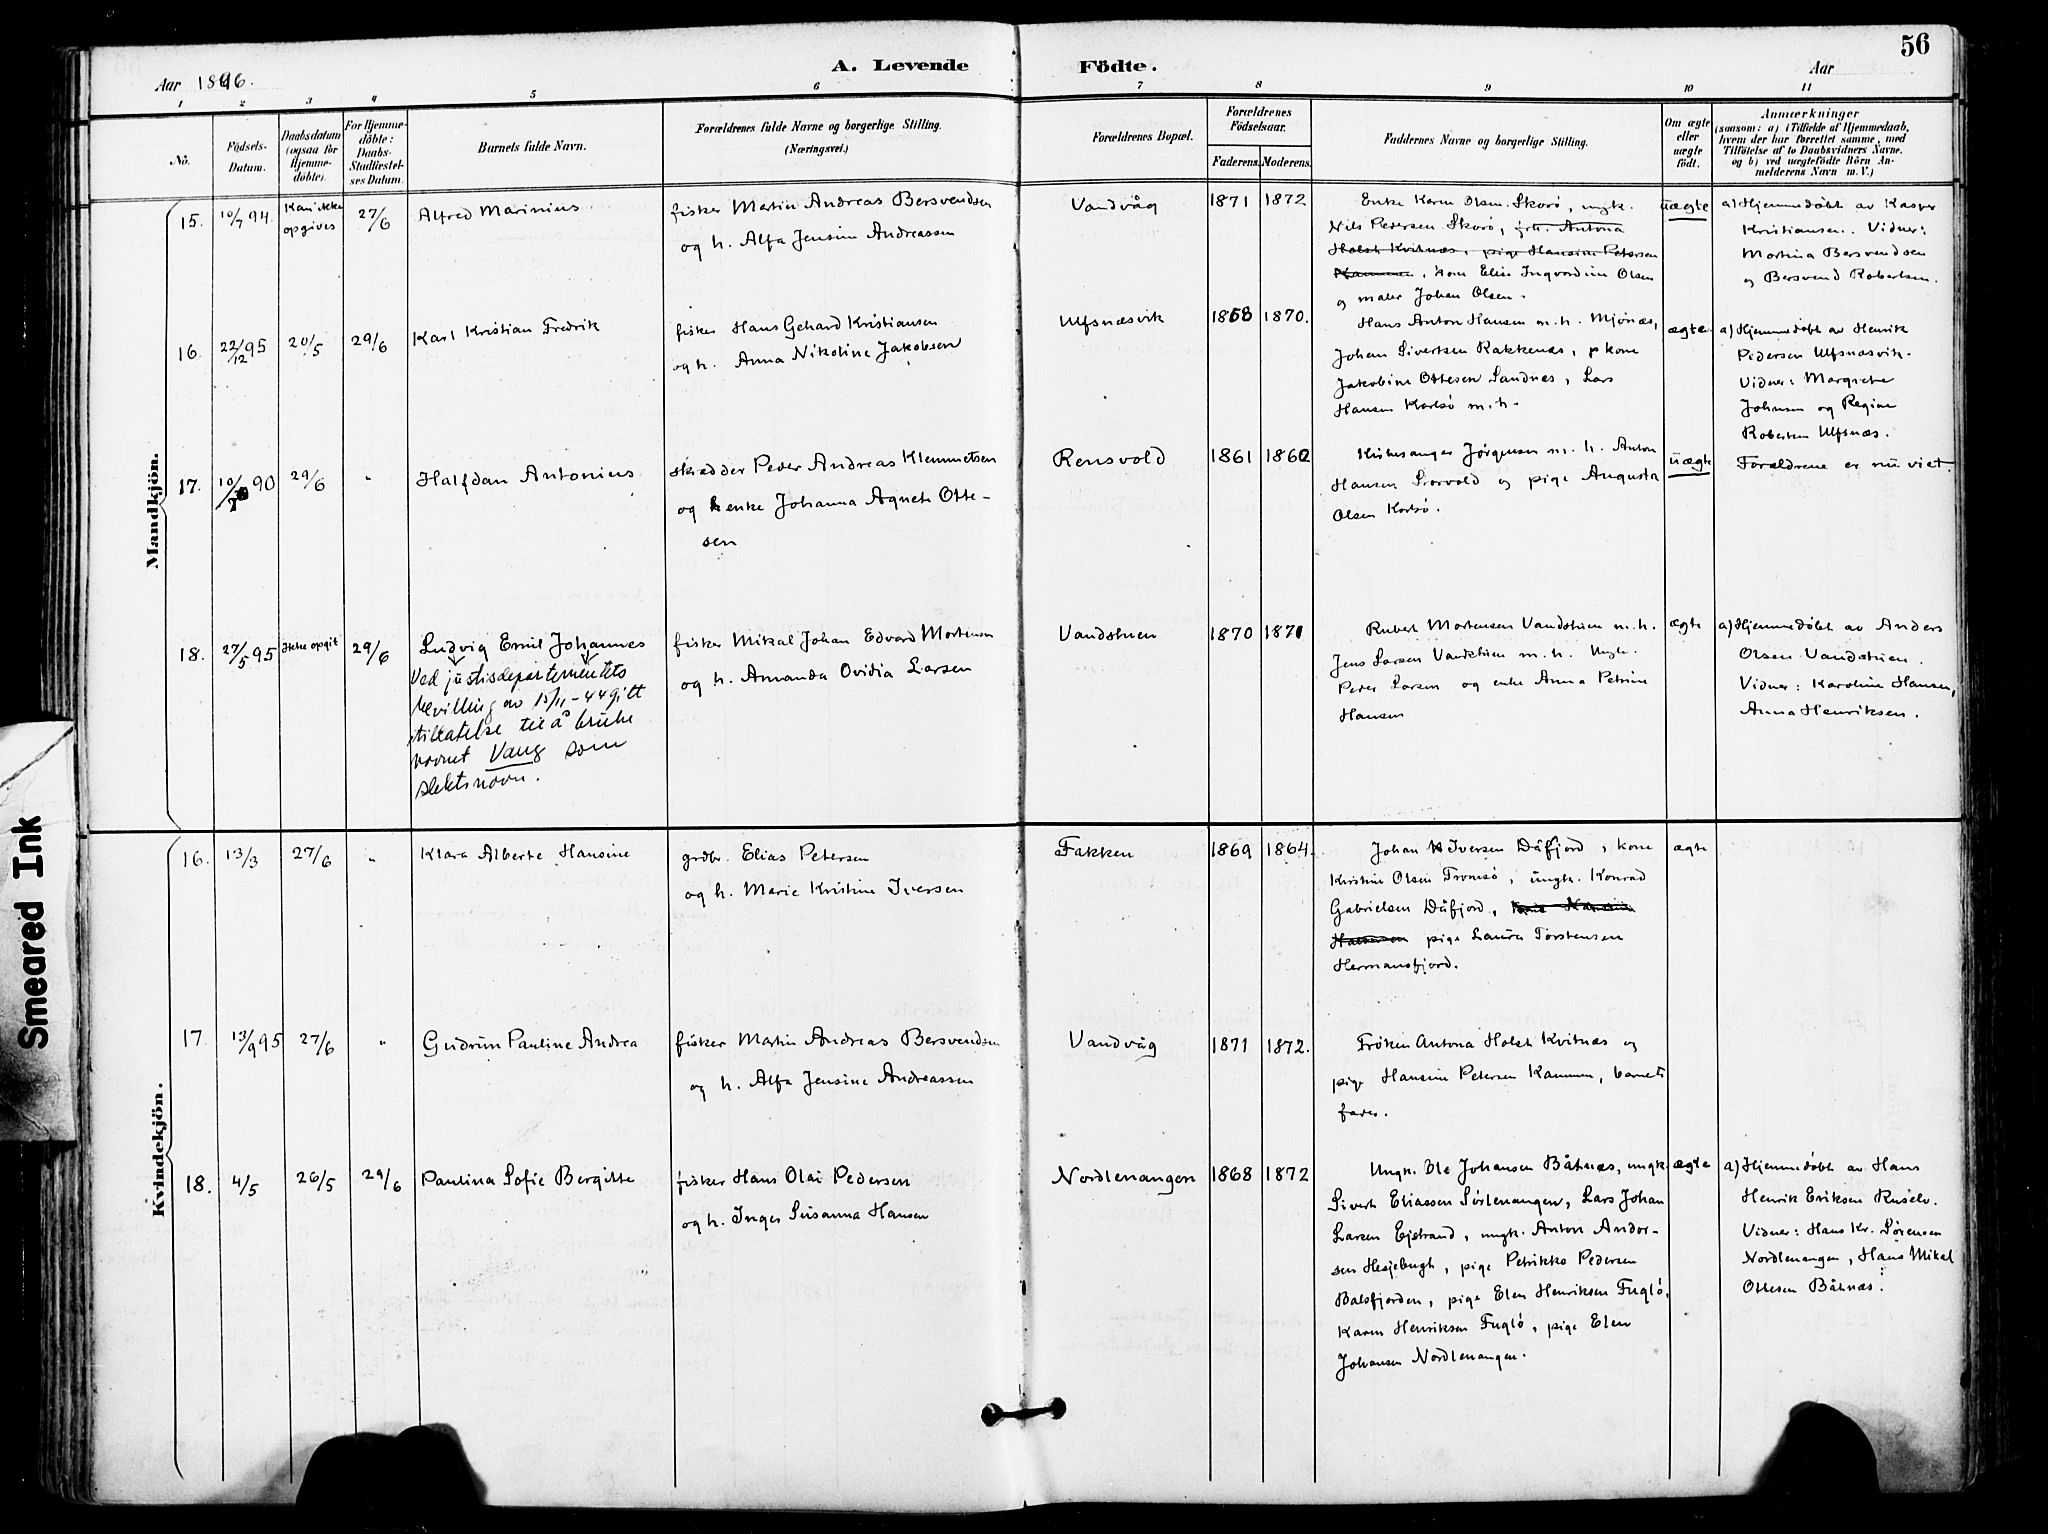 56
Aar 1896.
A. Levende Födte.
Aar
1 2 3 4 5 6 7 8 9 10 11
No.
Födsels-
Datum.
Daabsdatum
(ogsaa for
Hjemme-
döbte).
For Hjemme-
döbte:
Daabs-
Stadfæstel-
ses Datum.
Barnets fulde Navn.
Forældrenes fulde Navne og borgerlige Stilling.
(Næringsvei.)
Forældrenes Bopæl.
Forældrenes
Födselsaar.
Faderens.
Moderens.
Faddernes Navne og borgerlige Stilling.
Om ægte
eller
uægte
födt.
Anmærkninger
(saasom: a) i Tilfælde af Hjemmedaab,
hvem der har forrettet samme, med
Tilföielse af to Daabsvidners Navne.
og b) ved uægtefödte Börn An-
melderens Navn m. V.)
Mandkjön.
15.
10/7 94.
Kan ikke
opgives
27/6
Alfred Marinius
fisker Martin Andreas Bersvendsen
og h. Alfa Jensine Andreassen
Vandvåg
1871
1872
Enke Karen Olsen Skorö, ungk.
Nils Pedersen Skorö, frk. Antona
Holst Kvitnæs, pige Hansine Petersen
Kammen, kone Elise Ingvordine Olsen
og maler Johan Olsen.
uægte
a) Hjemmedøbt av Kasper
Kristiansen. Vidner:
Martina Bersvendsen
og Bersvend Robertsen.
16.
22/12 95
20/5
29/6
Karl Kristian Fredrik
fisker Hans Gehard Kristiansen
og h. Anna Nikoline Jakobsen
Ulfsnæsvik
1868
1870.
Hans Anton Hansen m. h. Mjönæs,
Johan Sivertsen Rakkenæs, kone
Jakobine Ottesen Sandnæs, Lars
Hansen Karlsö m. h.
ægte
a) Hjemmedøbt av Henrik
Pedersen Ulfsnæsvik.
Vidner: Margrete
Johnsen og Regine
Robertsen Ulfsnæs.
17.
10/7 90
29/6
"
Halfdan Antonius
skrædder Peder Andreas Klemmetsen
og enke Johanna Agnete Otte-
sen
Rensvold
1861
1860
Kirkesanger Jørgensen m. h. Anton
Hansen Storvold og pige Augusta
Olsen Karlsö.
uægte
Forældrene er nu viet.
18.
27/5 95
Ikke opgit
29/6
Ludvig Emil Johannes
Ved justisdepartementets
bevilling av 15/11-44 gitt
tillatelse til å bruke
navnet Vang som
slektsnavn.
fisker Mikal Johan Edvard Mortensen
og h. Amanda Ovidia Larsen
Vandstuen
1870
1871
Rubert Mortensen Vandstuen m. h.
Jens Larsen Vandstuen m. h. Ungk.
Peder Larsen og enke Anna Petrine
Hansen
ægte
a) Hjemmedøbt av Anders
Olsen Vandstuen.
Vidner: Karoline Hansen,
Anna Henriksen.
Kvindekjön.
16.
13/3
27/6
"
Klara Alberte Hansine
grdbr. Elias Petersen
og h. Marie Kristine Iversen
Fakken
1869
1864.
Johan Iversen Dåfjord, kone
Kirstine Olsen Tromsö, ungk. Konrad
Gabrielsen Dåfjord,
pige Laura Torstensen
Hermansfjord.
ægte
17.
13/9 95
27/6
"
Gudrun Pauline Andrea
fisker Martin Andreas Bersvendsen
og h. Alfa Jensine Andreassen
Vandvåg
1871
1872.
Fröken Antona Holst Kvitnæs og
pige Hansine Petersen Kammen, barnets
fader.
18.
4/5
26/5
29/6
Paulina Sofie Bergitte
fisker Hans Olai Pedersen
og h. Inger Susanna Hansen
Nordlenangen
1868
1872
Ungk. Ole Johansen Båtnæs, ungk.
Sivert Eliassen Sörlenangen, Lars Johan
Larsen Ejstrand, ungk. Anton Andor-
sen Hesjebugt, pige Petrikke Pedersen
Balsfjorden, pige Elen Henriksen Fuglö,
Karen Henriksen Fuglö, pige Elen
Johansen Nordlenangen.
ægte
a) Hjemmedøbt av Hans
Henrik Eriksen Ruselv.
Vidner: Hans Kr. Sørensen
Nordlenangen, Hans Mikal
Ottesen Båtnæs.
Smeared Ink